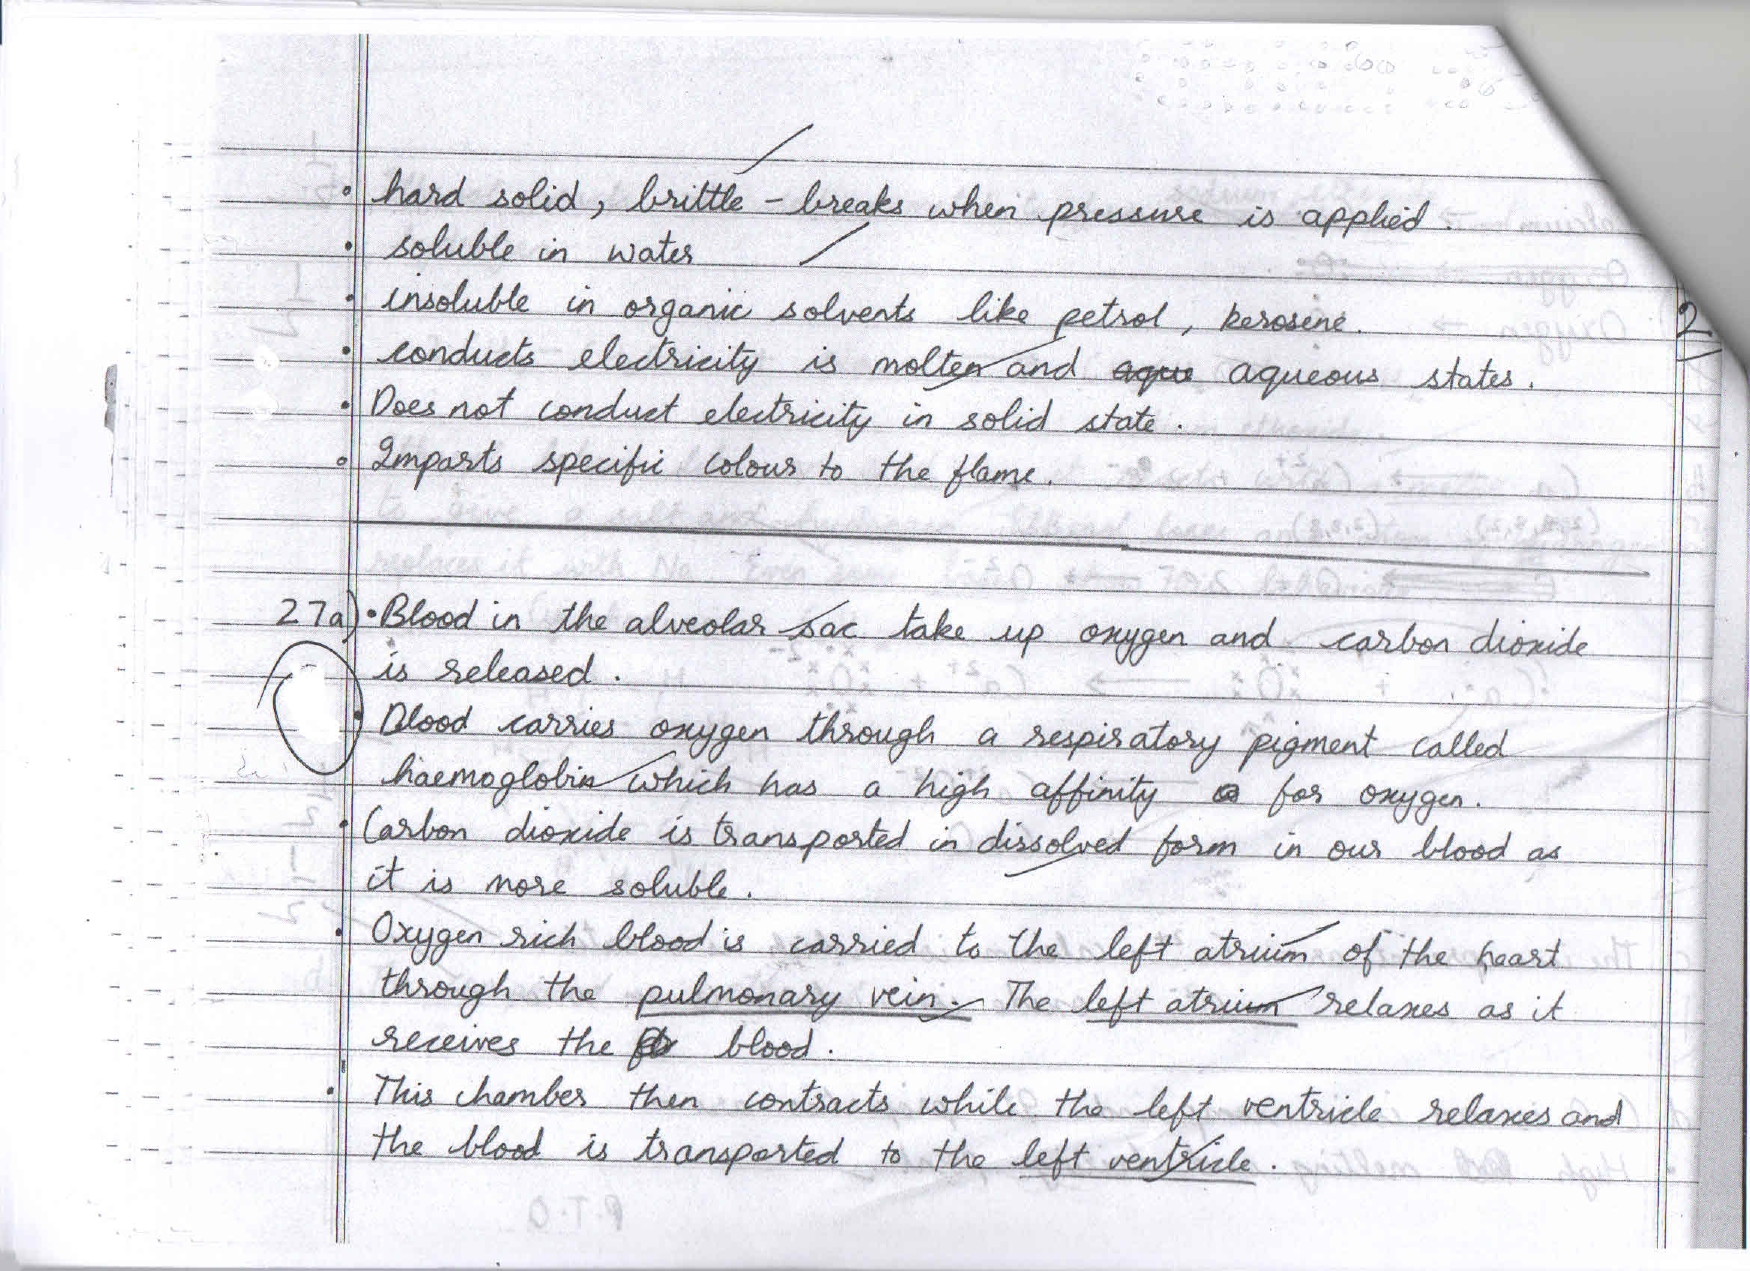 • hard solid, brittle - breaks when pressure is applied.
• soluble in water
• insoluble in organic solvents like petrol, kerosene.
• conducts electricity is molten and aque aqueous states.
• Does not conduct electricity in solid state.
• Imparts specific colour to the flame.
2
27a) • Blood in the alveolar sac take up oxygen and carbon dioxide
is released.
• Blood carries oxygen through a respiratory pigment called
haemoglobin which has a high affinity for oxygen.
• Carbon dioxide is transported in dissolved form in our blood as
it is more soluble.
• Oxygen rich blood is carried to the left atrium of the heart
through the pulmonary vein. The left atrium relaxes as it
receives the blood.
• This chamber then contracts while the left ventricle relaxes and
the blood is transported to the left ventricle.